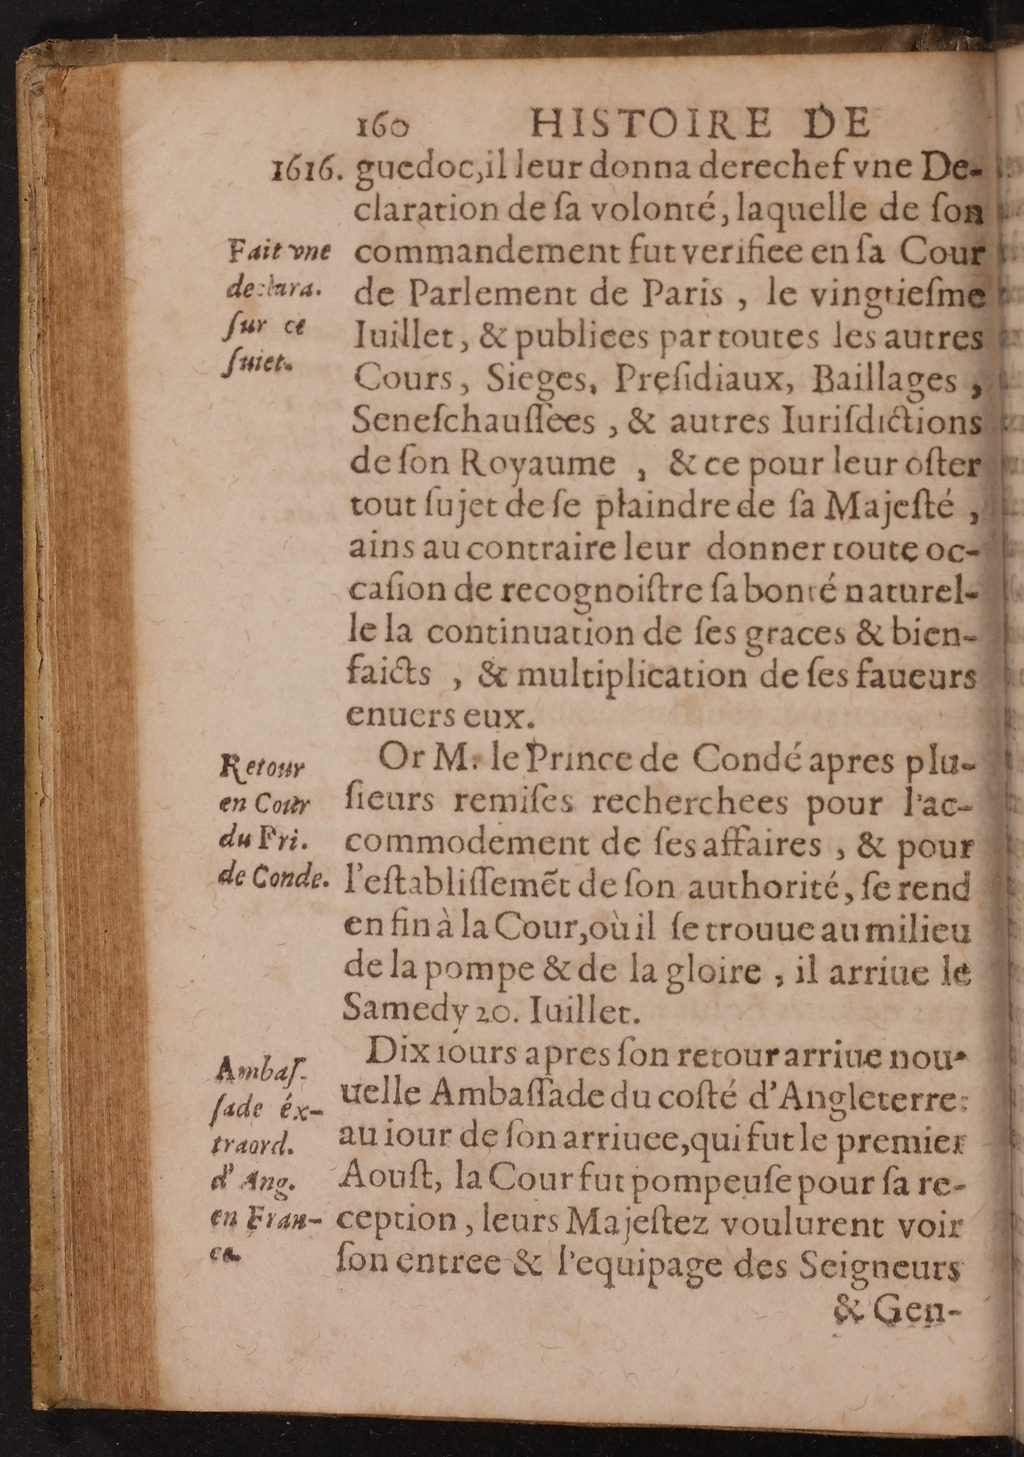 160 HISTOIRE DE
1616. guedoc, il leur donna derechef vne De-
claration de ſa volonté, laquelle de ſon
commandement fut verifiee en ſa Cour
de Parlement de Paris, le vingtieſme
Iuillet, & publiees par toutes les autres
Cours, Sieges, Preſidiaux, Baillages,
Seneſchauſſees, & autres Iuriſdictions
de ſon Royaume, & ce pour leur oſter
tout ſujet de ſe plaindre de ſa Majeſté,
ains au contraire leur donner toute oc-
caſion de recognoiſtre ſa bonté naturel-
le la continuation de ſes graces & bien-
faicts, & multiplication de ſes faueurs
enuers eux.
Fait vne
declara.
ſur ce
ſuiet.
Or M. le Prince de Condé apres plu-
ſieurs remiſes recherchees pour l'ac-
commodement de ſes affaires, & pour
l'eſtabliſſemẽt de ſon authorité, ſe rend
en fin à la Cour, où il ſe trouue au milieu
de la pompe & de la gloire, il arriue le
Samedy 20. Iuillet.
Retour
en Cour
du Pri.
de Conde.
Dix iours apres ſon retour arriue nou-
uelle Ambaſſade du coſté d'Angleterre:
au iour de ſon arriuee, qui fut le premier
Aouſt, la Cour fut pompeuſe pour ſa re-
ception, leurs Majeſtez voulurent voir
ſon entree & l'equipage des Seigneurs
Ambaſ-
ſade éx-
traord.
d'Ang.
en Fran-
ce.
& Gen-